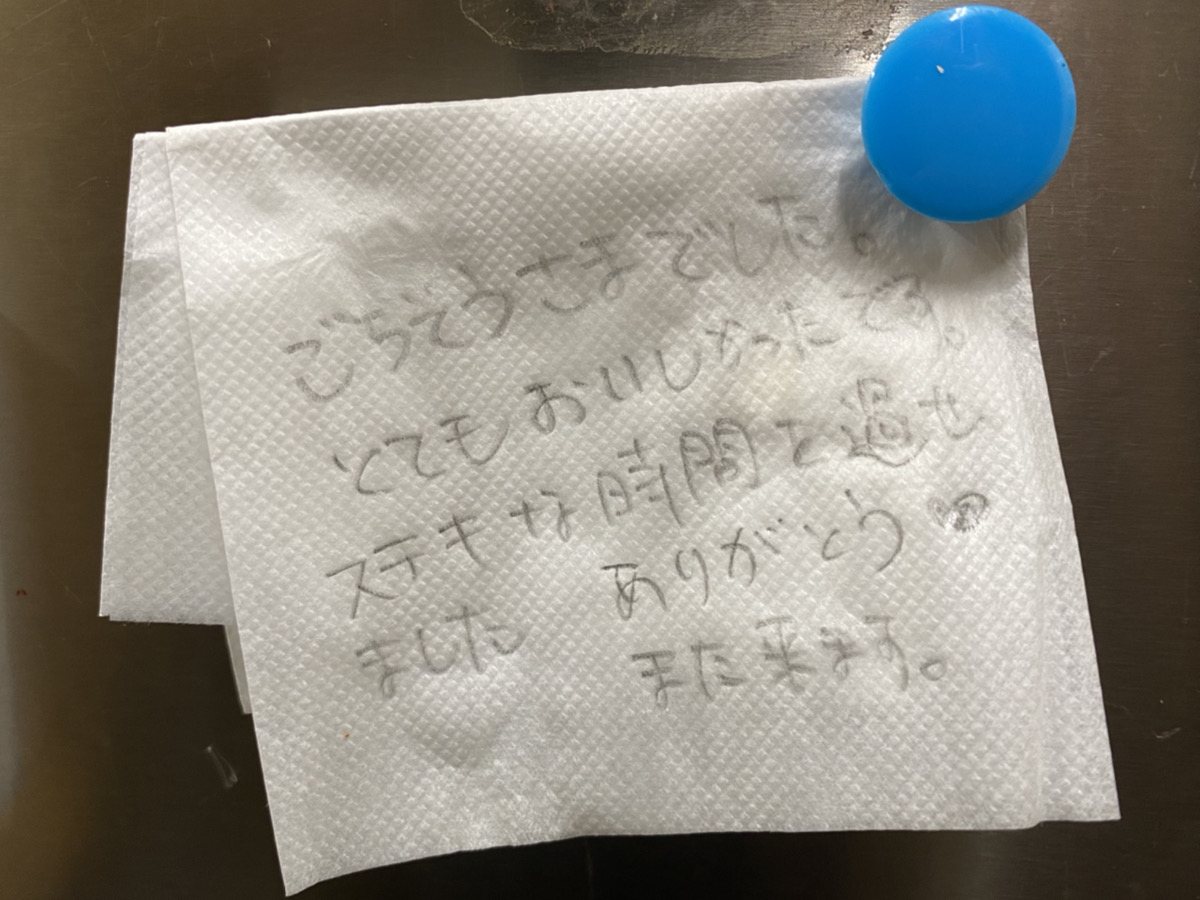 ごちそうさまでした。
とてもおいしかったです。
ステキな時間を過せ
ました ありがとう♡
また来ます。